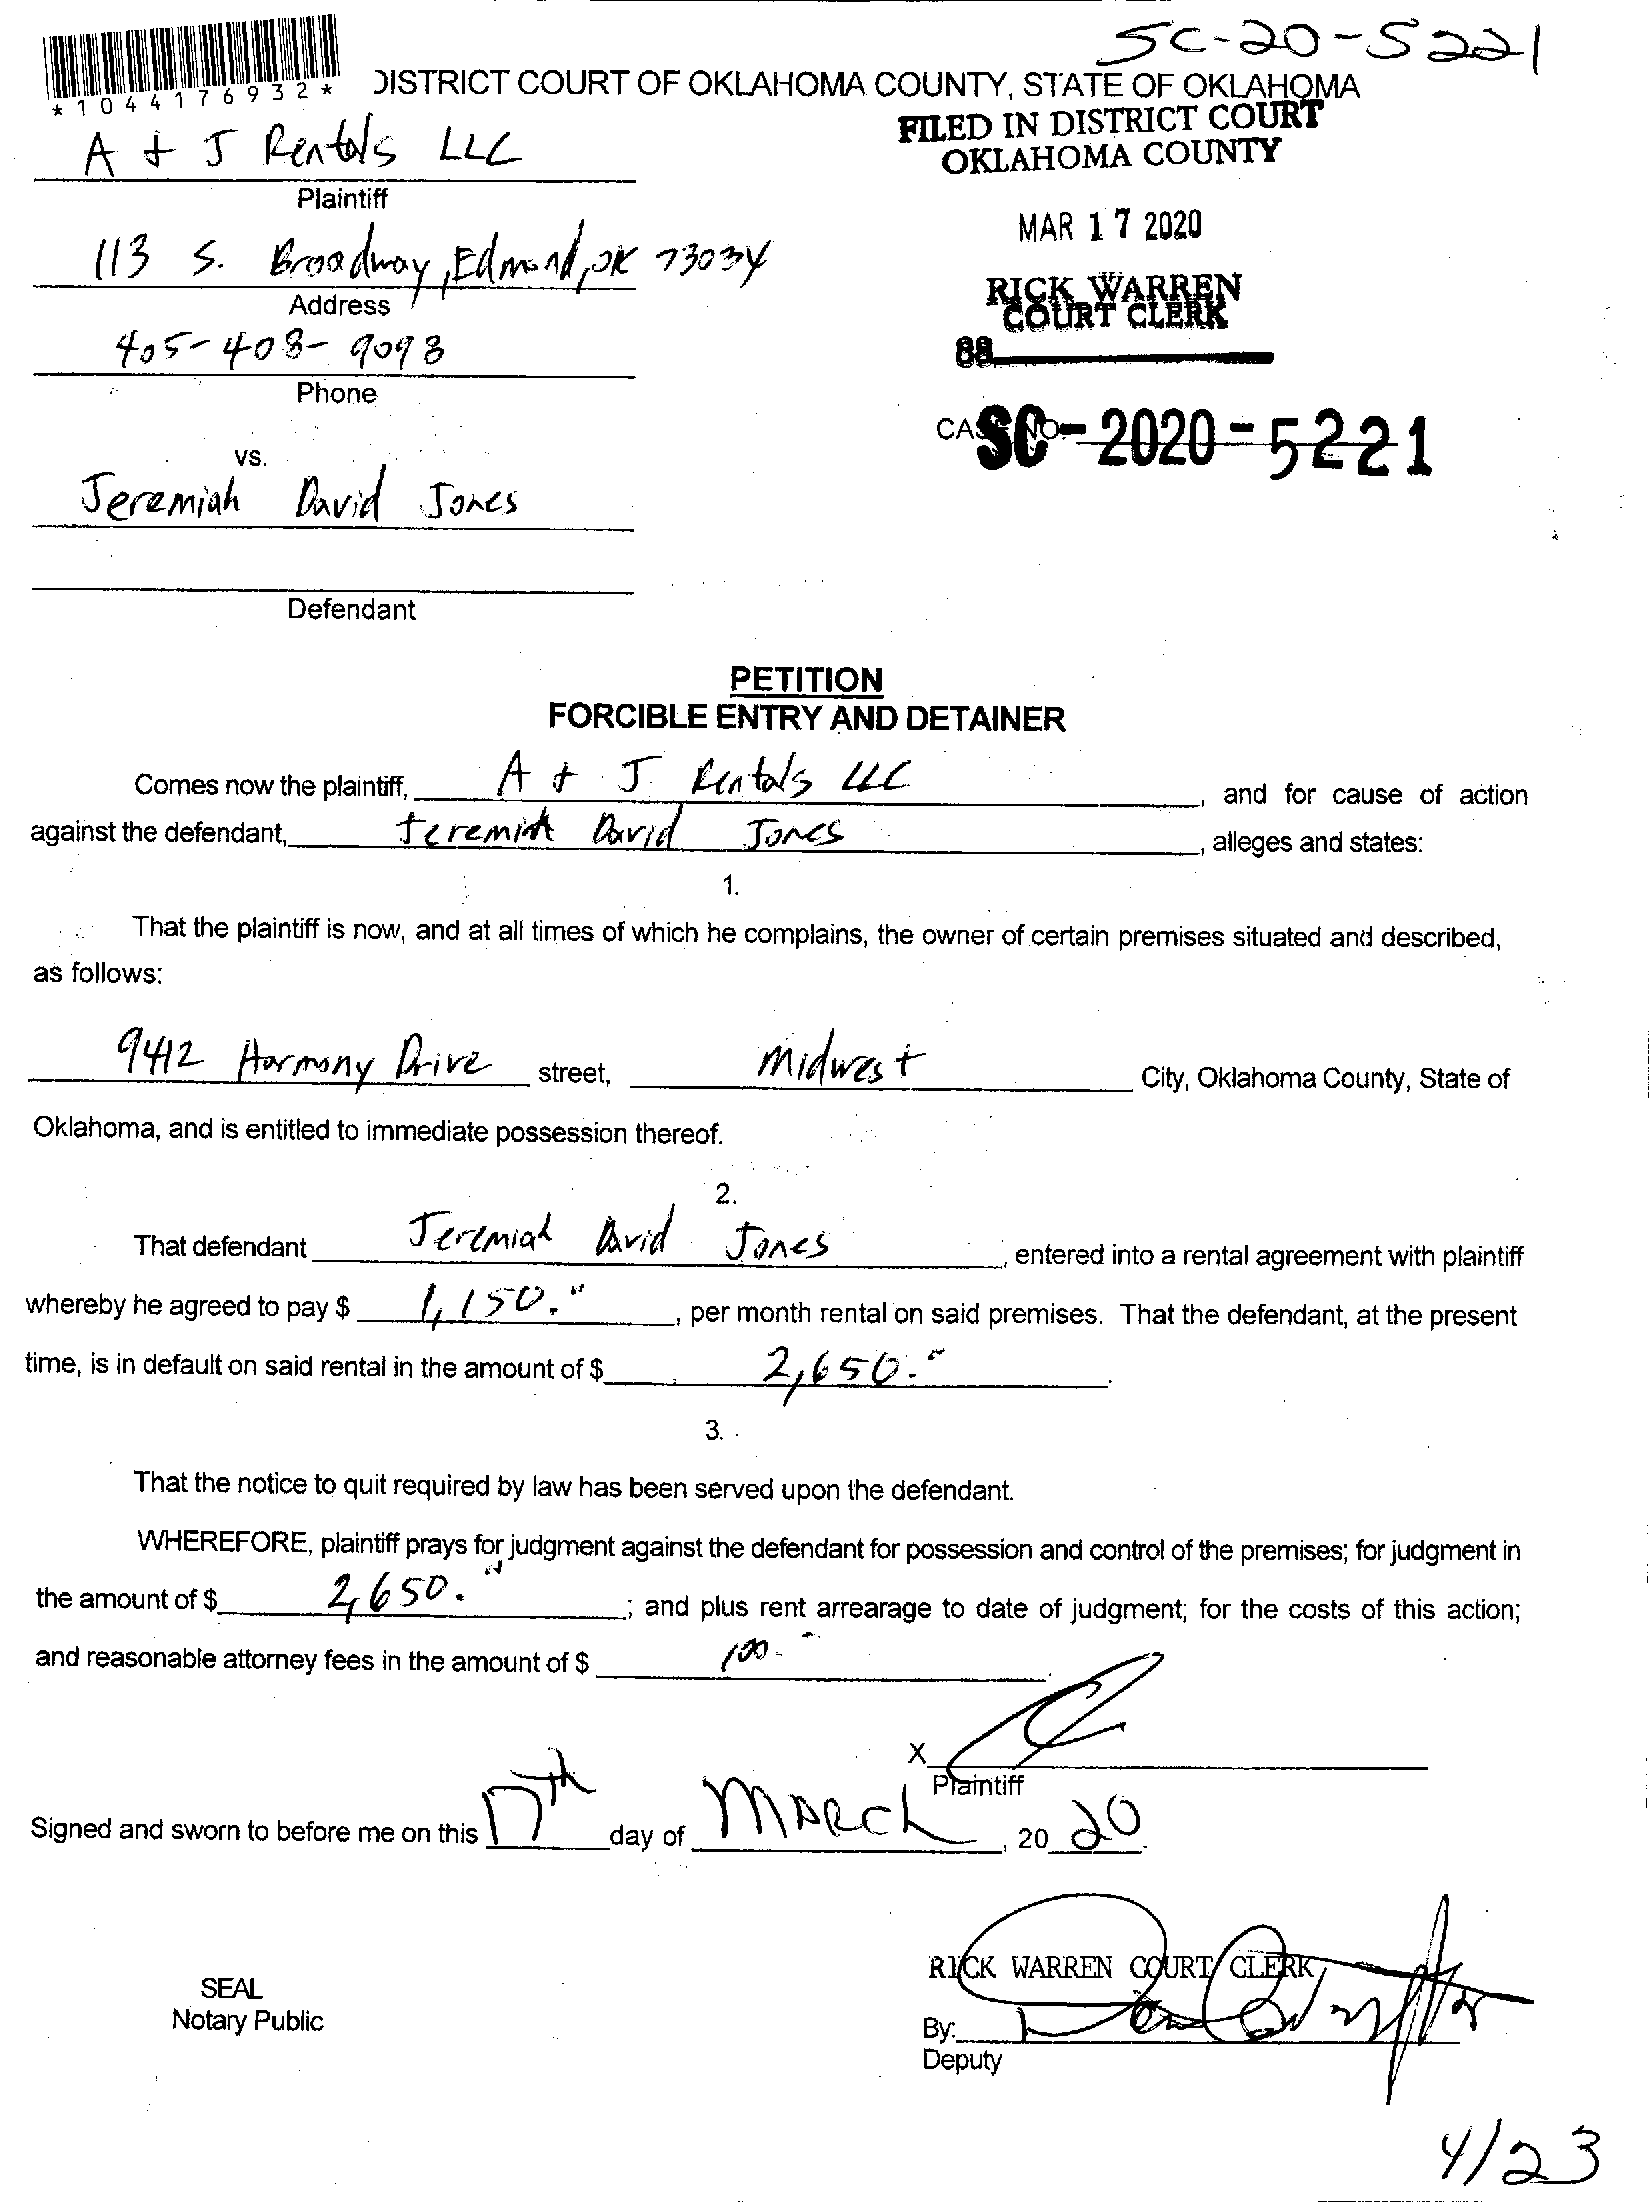 SC-20-5221
*1044176932*
DISTRICT COURT OF OKLAHOMA COUNTY, STATE OF OKLAHOMA
FILED IN DISTRICT COURT
OKLAHOMA COUNTY
A + J Rentals LLC
Plaintiff
MAR 17 2020
113 S. Broadway, Edmond, OK 73034
Address
RICK WARREN
COURT CLERK
405-408-9098
88
Phone
SC-2020-5221
vs.
Jeremiah David Jones
Defendant
PETITION
FORCIBLE ENTRY AND DETAINER
Comes now the plaintiff, A + J Rentals LLC, and for cause of action
against the defendant, Jeremiah David Jones, alleges and states:
1.
That the plaintiff is now, and at all times of which he complains, the owner of certain premises situated and described,
as follows:
9412 Harmony Drive street, Midwest City, Oklahoma County, State of
Oklahoma, and is entitled to immediate possession thereof.
2.
That defendant Jeremiah David Jones, entered into a rental agreement with plaintiff
whereby he agreed to pay $ 1,150.", per month rental on said premises. That the defendant, at the present
time, is in default on said rental in the amount of $ 2,650.".
3.
That the notice to quit required by law has been served upon the defendant.
WHEREFORE, plaintiff prays for judgment against the defendant for possession and control of the premises; for judgment in
the amount of $ 2,650."; and plus rent arrearage to date of judgment; for the costs of this action;
and reasonable attorney fees in the amount of $ 100.-
X
Plaintiff
Signed and sworn to before me on this 17th day of MARCH, 20 20.
RICK WARREN COURT CLERK
SEAL
Notary Public
By:
Deputy
4/23